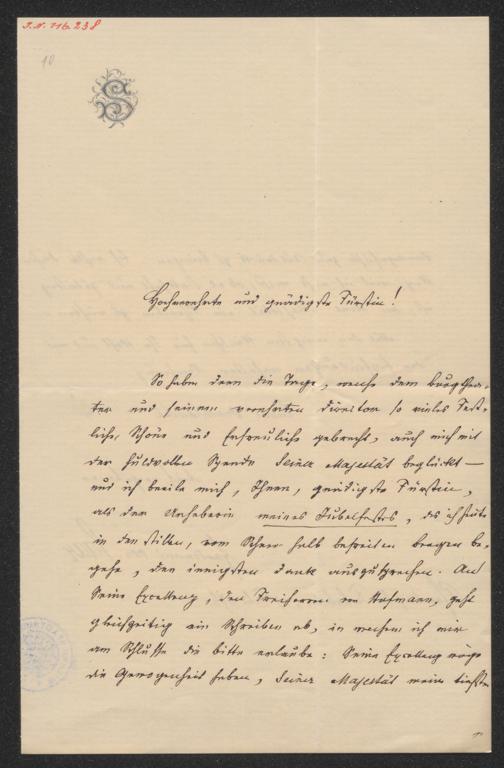 J.N. 116.238
10
S
Hochverehrte und gnädigste Fürstin!
So haben denn die Tage, welche dem Burgthea-
ter und seinem verehrten Director so vieles Fest-
liche, Schöne und Erfreuliche gebracht, auch mich mit
der huldvollen Spende Seiner Majestät beglückt —
und ich beeile mich, Ihnen, gnädigste Fürstin,
als der Urheberin meines Jubelfestes, das ich heute
in den stillen, vom Schnee halb befreiten Bergen be-
gehe, den innigsten Dank auszusprechen. An
Seine Excellenz, den Freiherrn von Hofmann, geht
gleichzeitig ein Schreiben ab, in welchem ich mir
am Schlusse die Bitte erlaube: Seine Excellenz möge
die Gewogenheit haben, Seiner Majestät meinen tiefsten